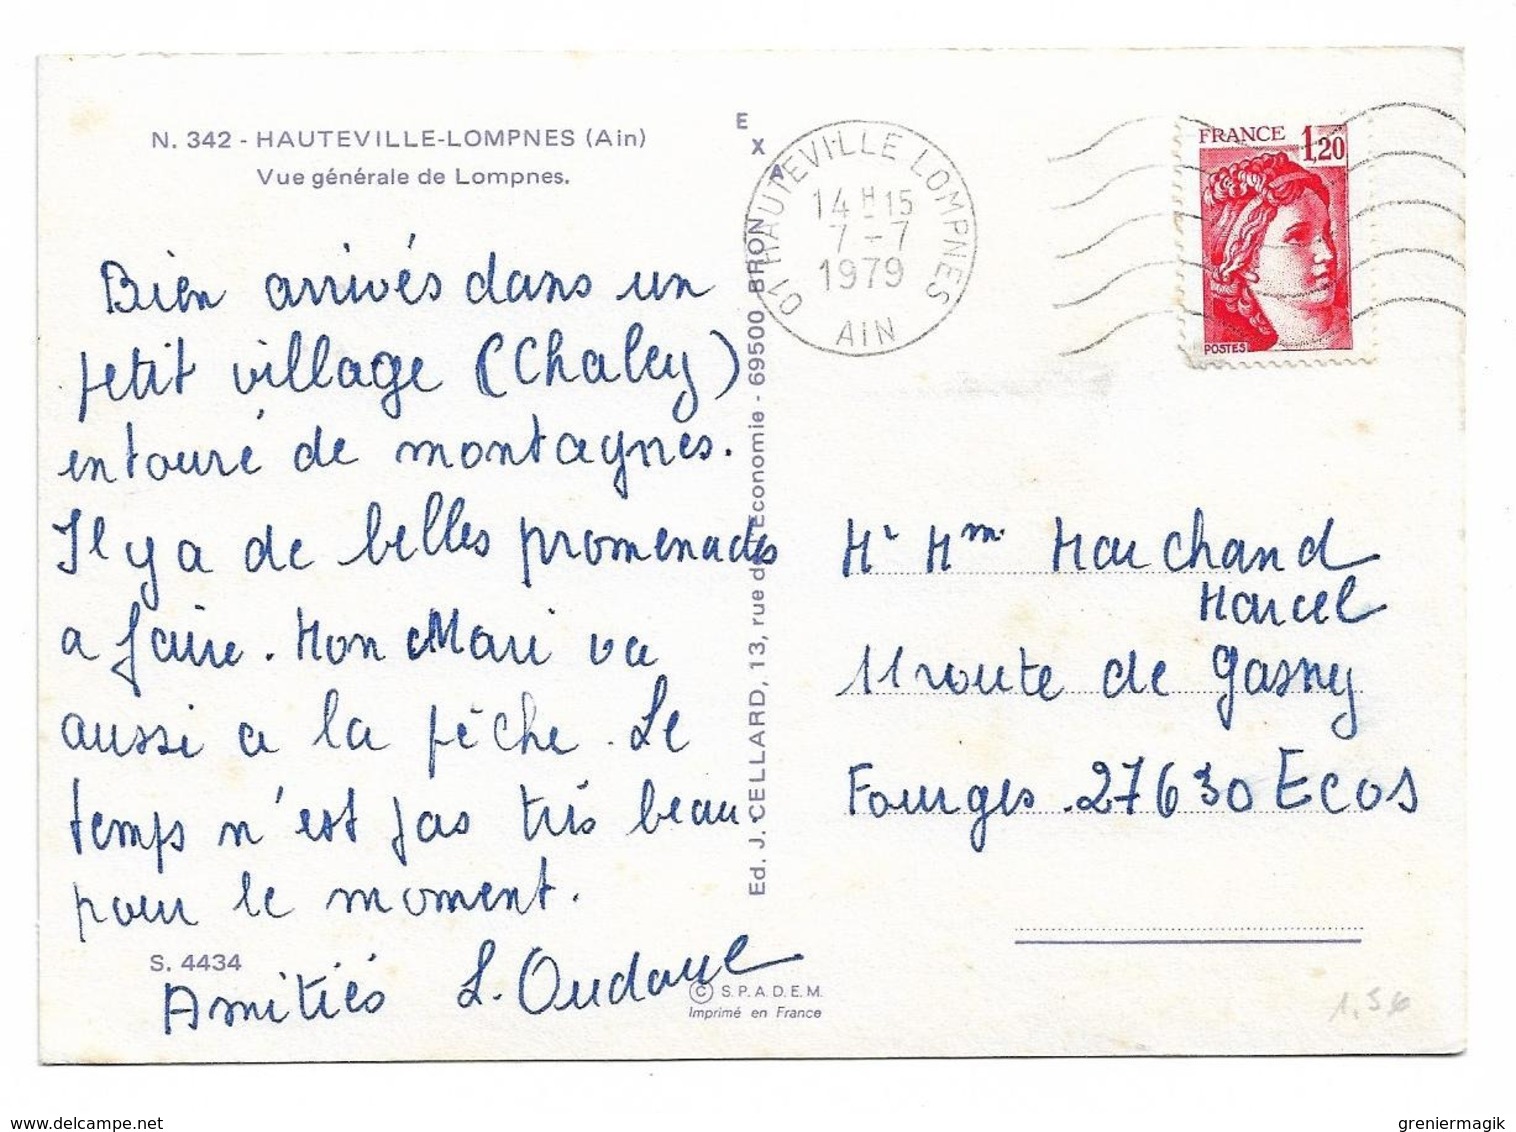 N. 342 - HAUTEVILLE-LOMPNES (Ain)
Vue générale de Lompnes.
Bien arrivés dans un
petit village (Chaley)
entouré de montagnes.
Il y a de belles promenades
a faire. Mon Mari va
aussi a la pêche. Le
temps n'est pas très beau
pour le moment.
Amitiés L.
S. 4434
EXA
Ed. J. CELLARD, 13, rue de Economie - 69500 BRON
© S.P.A.D.E.M.
Imprimé en France
01 HAUTEVILLE LOMPNES
14 H 15
7 - 7
1979
AIN
FRANCE 1,20
POSTES
Mr Mm. Marchand
Marcel
11 route de Gasny
Fourges. 27630 ECOS
delcampe.net
greniermagik